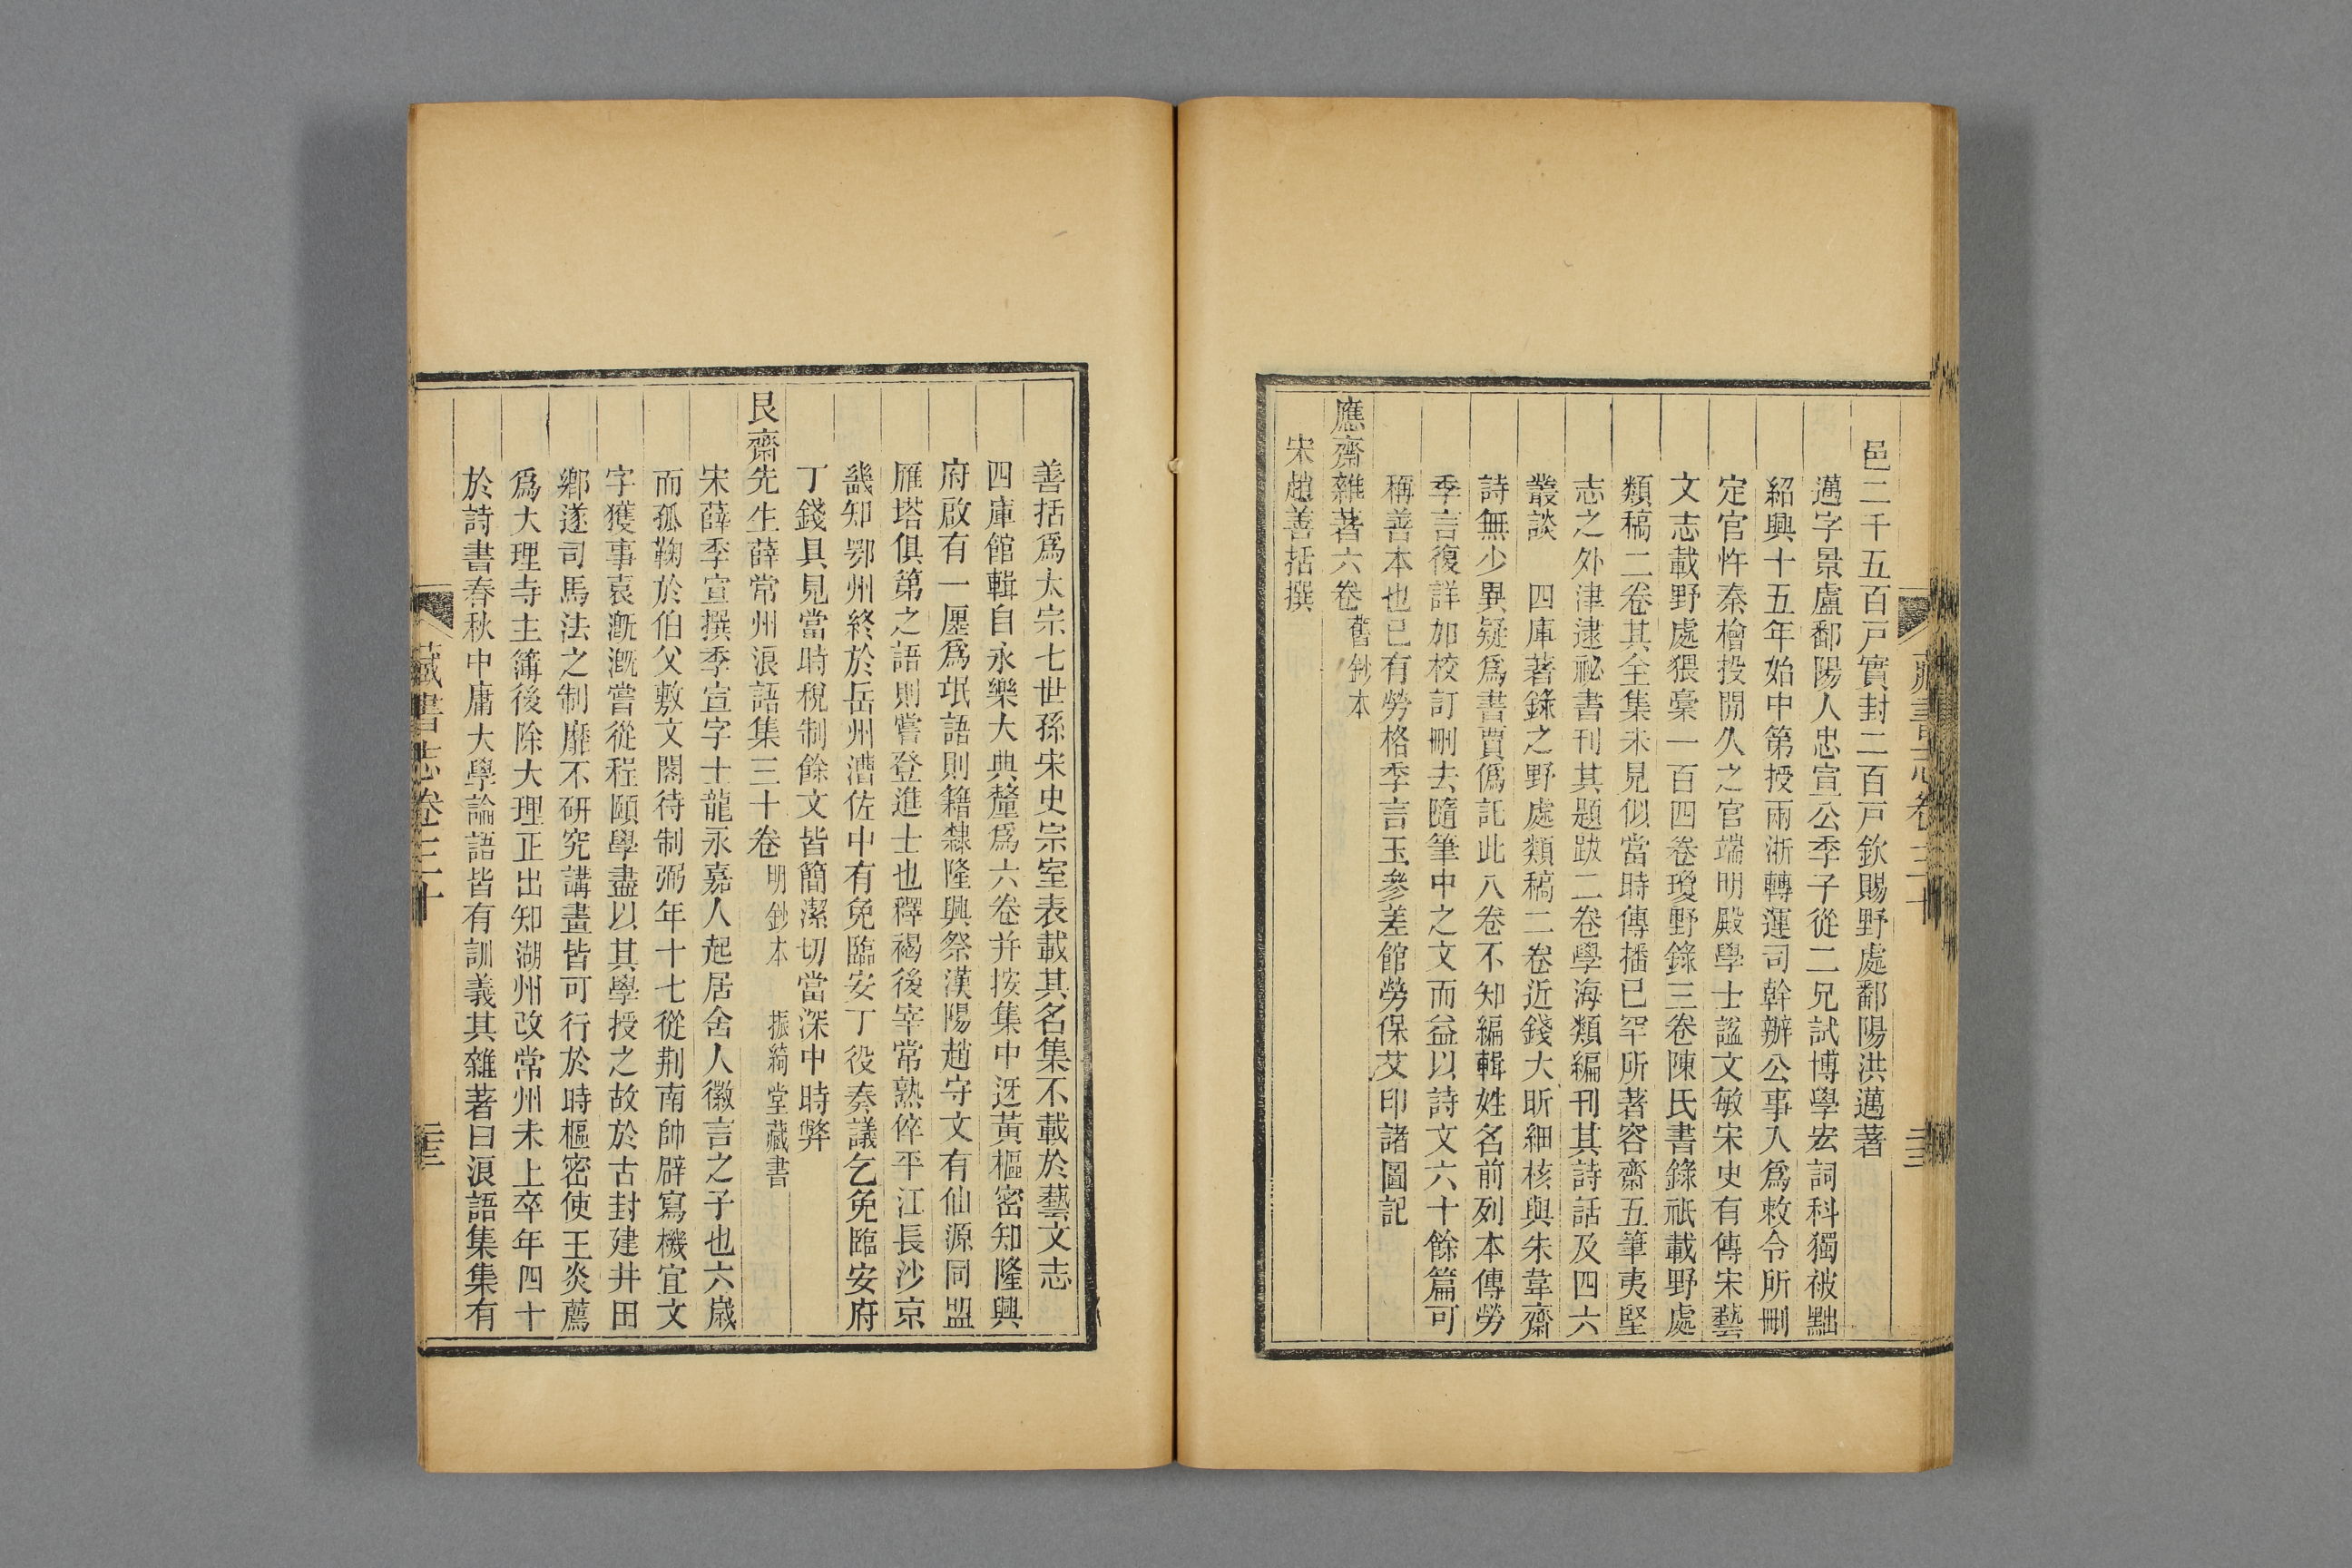 邑二千五百戸實封二百戸欽賜野處鄱陽洪邁著
邁字景盧鄱陽人忠宣公季子從二兄試博學宏詞科獨被黜
紹興十五年始中第授兩浙轉運司幹辦公事入爲敕令所刪
定官忤秦檜投閒久之官端明殿學士謚文敏宋史有傳宋藝
文志載野處猥稾一百四卷瓊野錄三卷陳氏書錄祇載野處
類稿二卷其全集未見似當時傳播已罕所著容齋五筆夷堅
志之外津逮祕書刊其題跋二卷學海類編刊其詩話及四六
叢談　四庫著錄之野處類稿二卷近錢大昕細核與朱韋齋
詩無少異疑爲書賈僞託此八卷不知編輯姓名前列本傳勞
季言復詳加校訂刪去隨筆中之文而益以詩文六十餘篇可
稱善本也已有勞格季言玉參差館勞保艾印諸圖記
應齋雜著六卷　舊鈔本
宋趙善括撰
藏書志卷三十
三三
善括爲太宗七世孫宋史宗室表載其名集不載於藝文志
四庫館輯自永樂大典釐爲六卷幷按集中迓黃樞密知隆興
府啟有一廛爲氓語則籍隸隆興祭漢陽趙守文有仙源同盟
雁塔俱第之語則嘗登進士也釋褐後宰常熟倅平江長沙京
畿知鄂州終於岳州漕佐中有免臨安丁役奏議乞免臨安府
丁錢具見當時稅制餘文皆簡潔切當深中時弊
艮齋先生薛常州浪語集三十卷　明鈔本　振綺堂藏書
宋薛季宣撰季宣字士龍永嘉人起居舍人徽言之子也六歲
而孤鞠於伯父敷文閣待制弼年十七從荆南帥辟寫機宜文
字獲事袁漑漑嘗從程頤學盡以其學授之故於古封建井田
鄉遂司馬法之制靡不硏究講畫皆可行於時樞密使王炎薦
爲大理寺主簿後除大理正出知湖州改常州未上卒年四十
於詩書春秋中庸大學論語皆有訓義其雜著曰浪語集集有
藏書志卷三十
三三